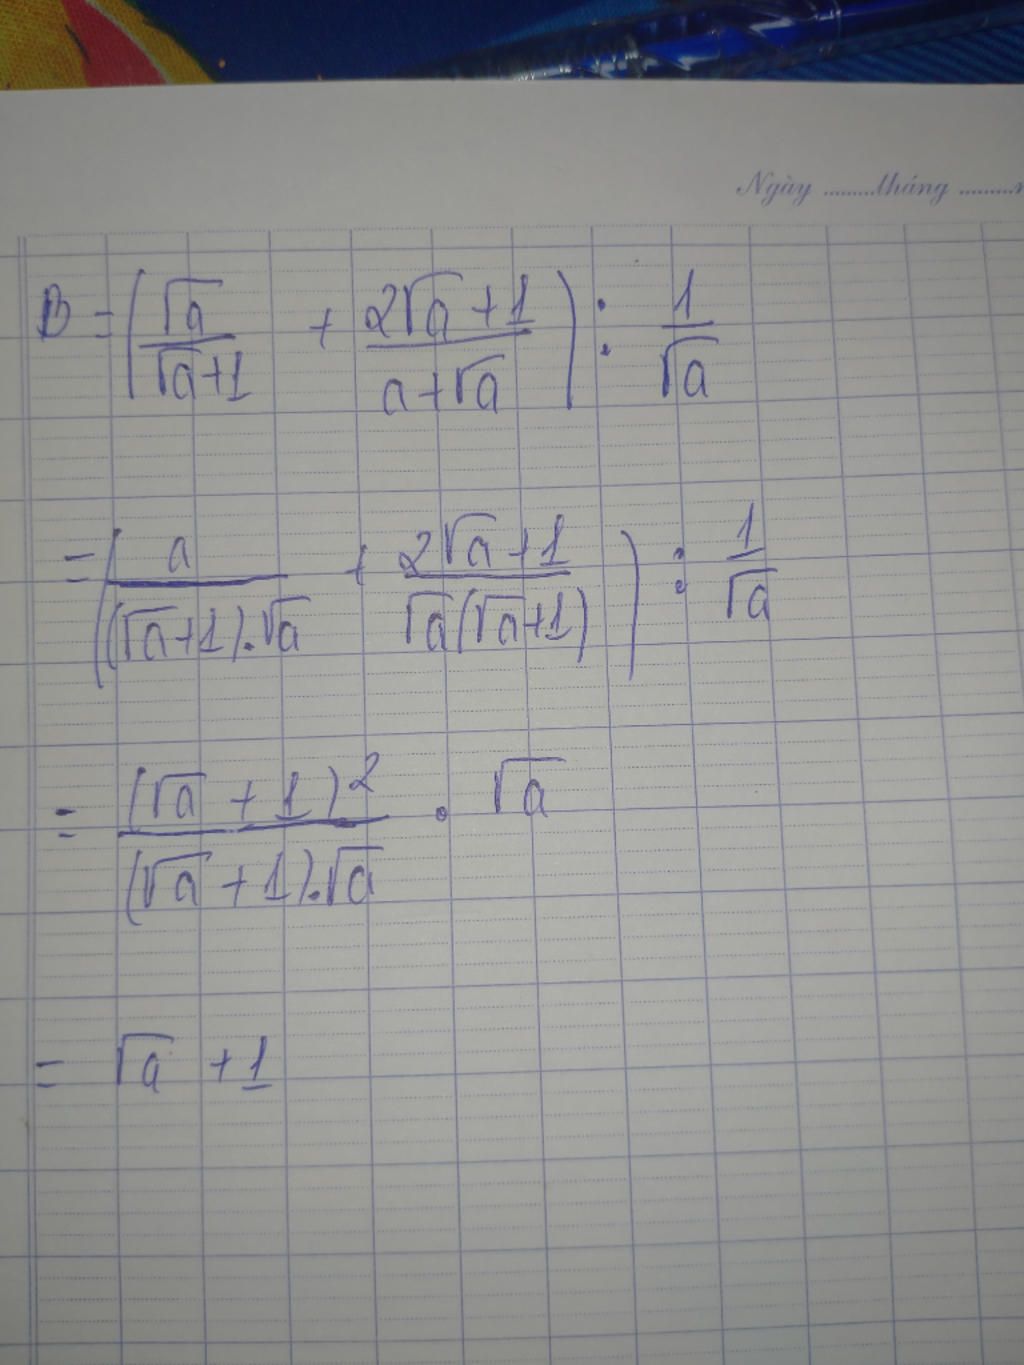 Ngày ........tháng ........n
B = (√a/(√a+1) + (2√a+1)/(a+√a)) : 1/√a
= (a/((√a+1).√a) + (2√a+1)/(√a(√a+1))) : 1/√a
= (√a+1)²/((√a+1).√a) . √a
= √a + 1